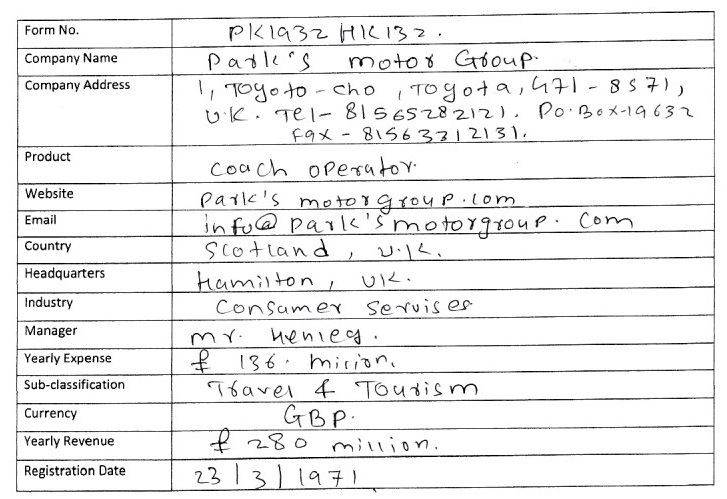 Form No. PK1932 HK132.
Company Name Park's motor Group.
Company Address 1, Toyoto-cho, Toyota, 471-8571,
U.K. Tel- 81565282121. Po.Box-19632
Fax - 81563312131.
Product Coach operator.
Website Park's motorgroup.com
Email info@park'smotorgroup.com
Country Scotland, U.K.
Headquarters Hamilton, UK.
Industry Consamer Servises
Manager mr. Henieg.
Yearly Expense £ 136. mirion.
Sub-classification Travel & Tourism
Currency GBP.
Yearly Revenue £ 280 million.
Registration Date 23/3/1971